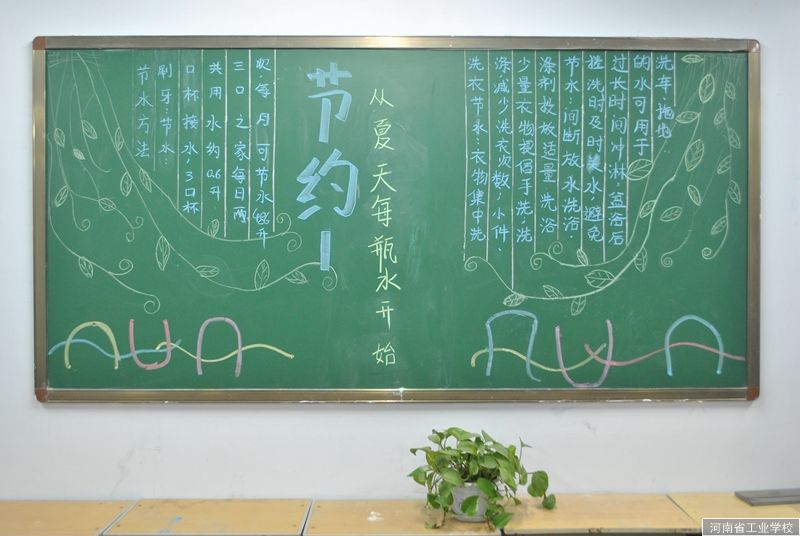 节水方法
刷牙:节水:
口杯接水,3口杯
共用水约0.6升
三口之家每日两
次,每月可节水486升
节约—
从夏天每瓶水开始
洗衣节水:衣物集中洗
涤,减少洗衣次数;小件、
少量衣物提倡手洗;洗
涤剂投放适量 洗浴
节水:间断放水洗浴.
搓洗时及时关水,避免
过长时间冲淋,盆浴后
的水可用于
洗车,拖地.
河南省工业学校